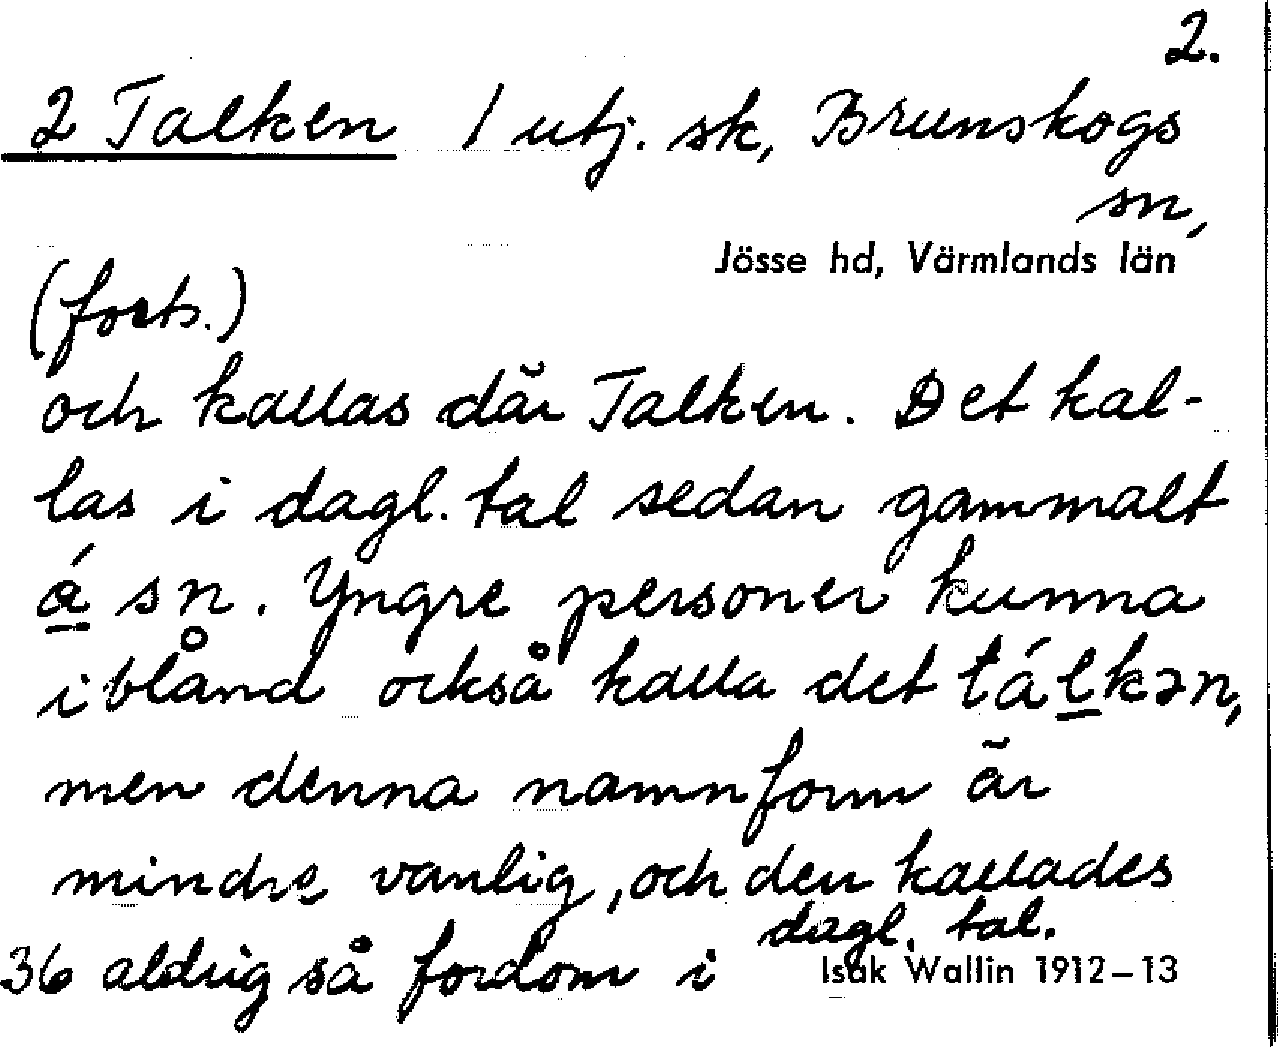 2.
2 Talken / utj. sk, Brunskogs
sn,
Jösse hd, Värmlands län
(forts.)
och kallas där Talken. Det kal-
las i dagl. tal sedan gammalt
á sn. Yngre personer kunna
ibland också kalla det tálkən,
men denna namnform är
mindre vanlig, och den kallades
36 aldrig så fordom i dagl. tal.
Isak Wallin 1912–13